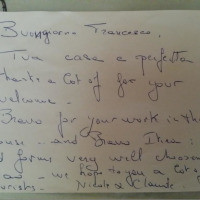 Buongiorno Francesco,
Tua casa è perfetta
thanks a lot of for your
welcome.
Bravo for your work in the
ouse.. and Bravo Ikea:
forms very well choosen
we hope to you a lot of
ourists.. Nicole & Claude